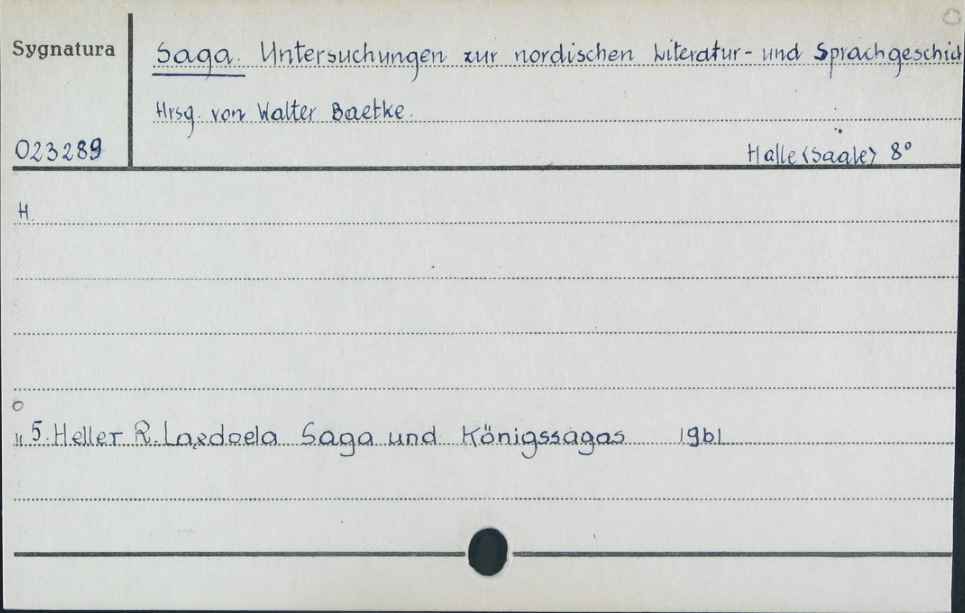 Sygnatura
Saga. Untersuchungen zur nordischen Literatur- und Sprachgeschich
Hrsg. von Walter Baetke.
023289
Halle <Saale> 8°
H.
5. Heller R. Laxdoela Saga und Königssagas 1961